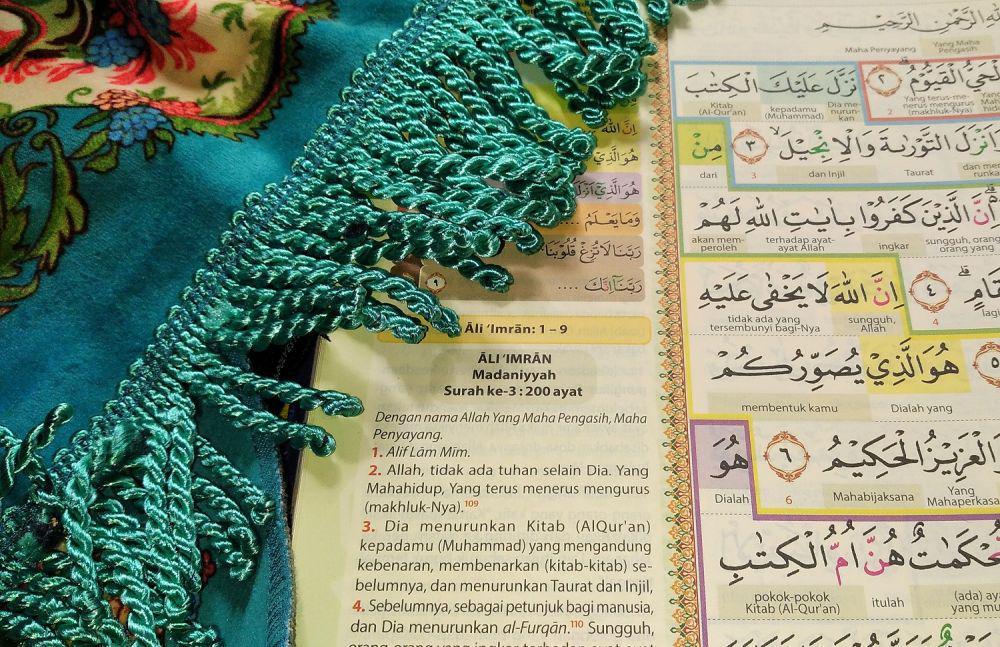 اِنَّ اللّٰهَ
هُوَ الَّذِيْ
هُوَ الَّذِيْٓ اَنْزَلَ
وَمَا يَعْلَمُ ....
رَبَّنَا لَا تُزِغْ قُلُوْبَنَا
٩ رَبَّنَآ اِنَّكَ ....
Āli ‘Imrān: 1 – 9
ĀLI ‘IMRĀN
Madaniyyah
Surah ke-3 : 200 ayat
Dengan nama Allah Yang Maha Pengasih, Maha
Penyayang.
1. Alif Lām Mīm.
2. Allah, tidak ada tuhan selain Dia. Yang
Mahahidup, Yang terus menerus mengurus
(makhluk-Nya).109
3. Dia menurunkan Kitab (AlQur'an)
kepadamu (Muhammad) yang mengandung
kebenaran, membenarkan (kitab-kitab) se-
belumnya, dan menurunkan Taurat dan Injil,
4. Sebelumnya, sebagai petunjuk bagi manusia,
dan Dia menurunkan al-Furqān.110 Sungguh,
orang-orang yang ingkar terhadap ayat-ayat
الرَّحْمٰنِ الرَّحِيْمِ
Yang Maha
Maha Penyayang Pengasih
الْحَيُّ الْقَيُّوْمُ ٢ نَزَّلَ عَلَيْكَ الْكِتٰبَ
Yang terus-me-
nerus mengurus
(makhluk-Nya) 2 Dia me-
nurun-
kan kepadamu
(Muhammad) Kitab
(Al-Qur'an)
وَاَنْزَلَ التَّوْرٰىةَ وَالْاِنْجِيْلَ ٣ مِنْ
Taurat dan Injil 3 dari
اِنَّ الَّذِيْنَ كَفَرُوْا بِاٰيٰتِ اللّٰهِ لَهُمْ
sungguh, orang-
orang yang ingkar terhadap ayat-
ayat Allah akan mem-
peroleh
٤ اِنَّ اللّٰهَ لَا يَخْفٰى عَلَيْهِ
4 sungguh,
Allah tidak ada yang
tersembunyi bagi-Nya
٥ هُوَ الَّذِيْ يُصَوِّرُكُمْ
Dialah yang membentuk kamu
الْعَزِيْزُ الْحَكِيْمُ ٦ هُوَ
Yang
Mahaperkasa Mahabijaksana 6 Dialah
مُّحْكَمٰتٌ هُنَّ اُمُّ الْكِتٰبِ
(ada) itulah pokok-pokok
Kitab (Al-Qur'an)